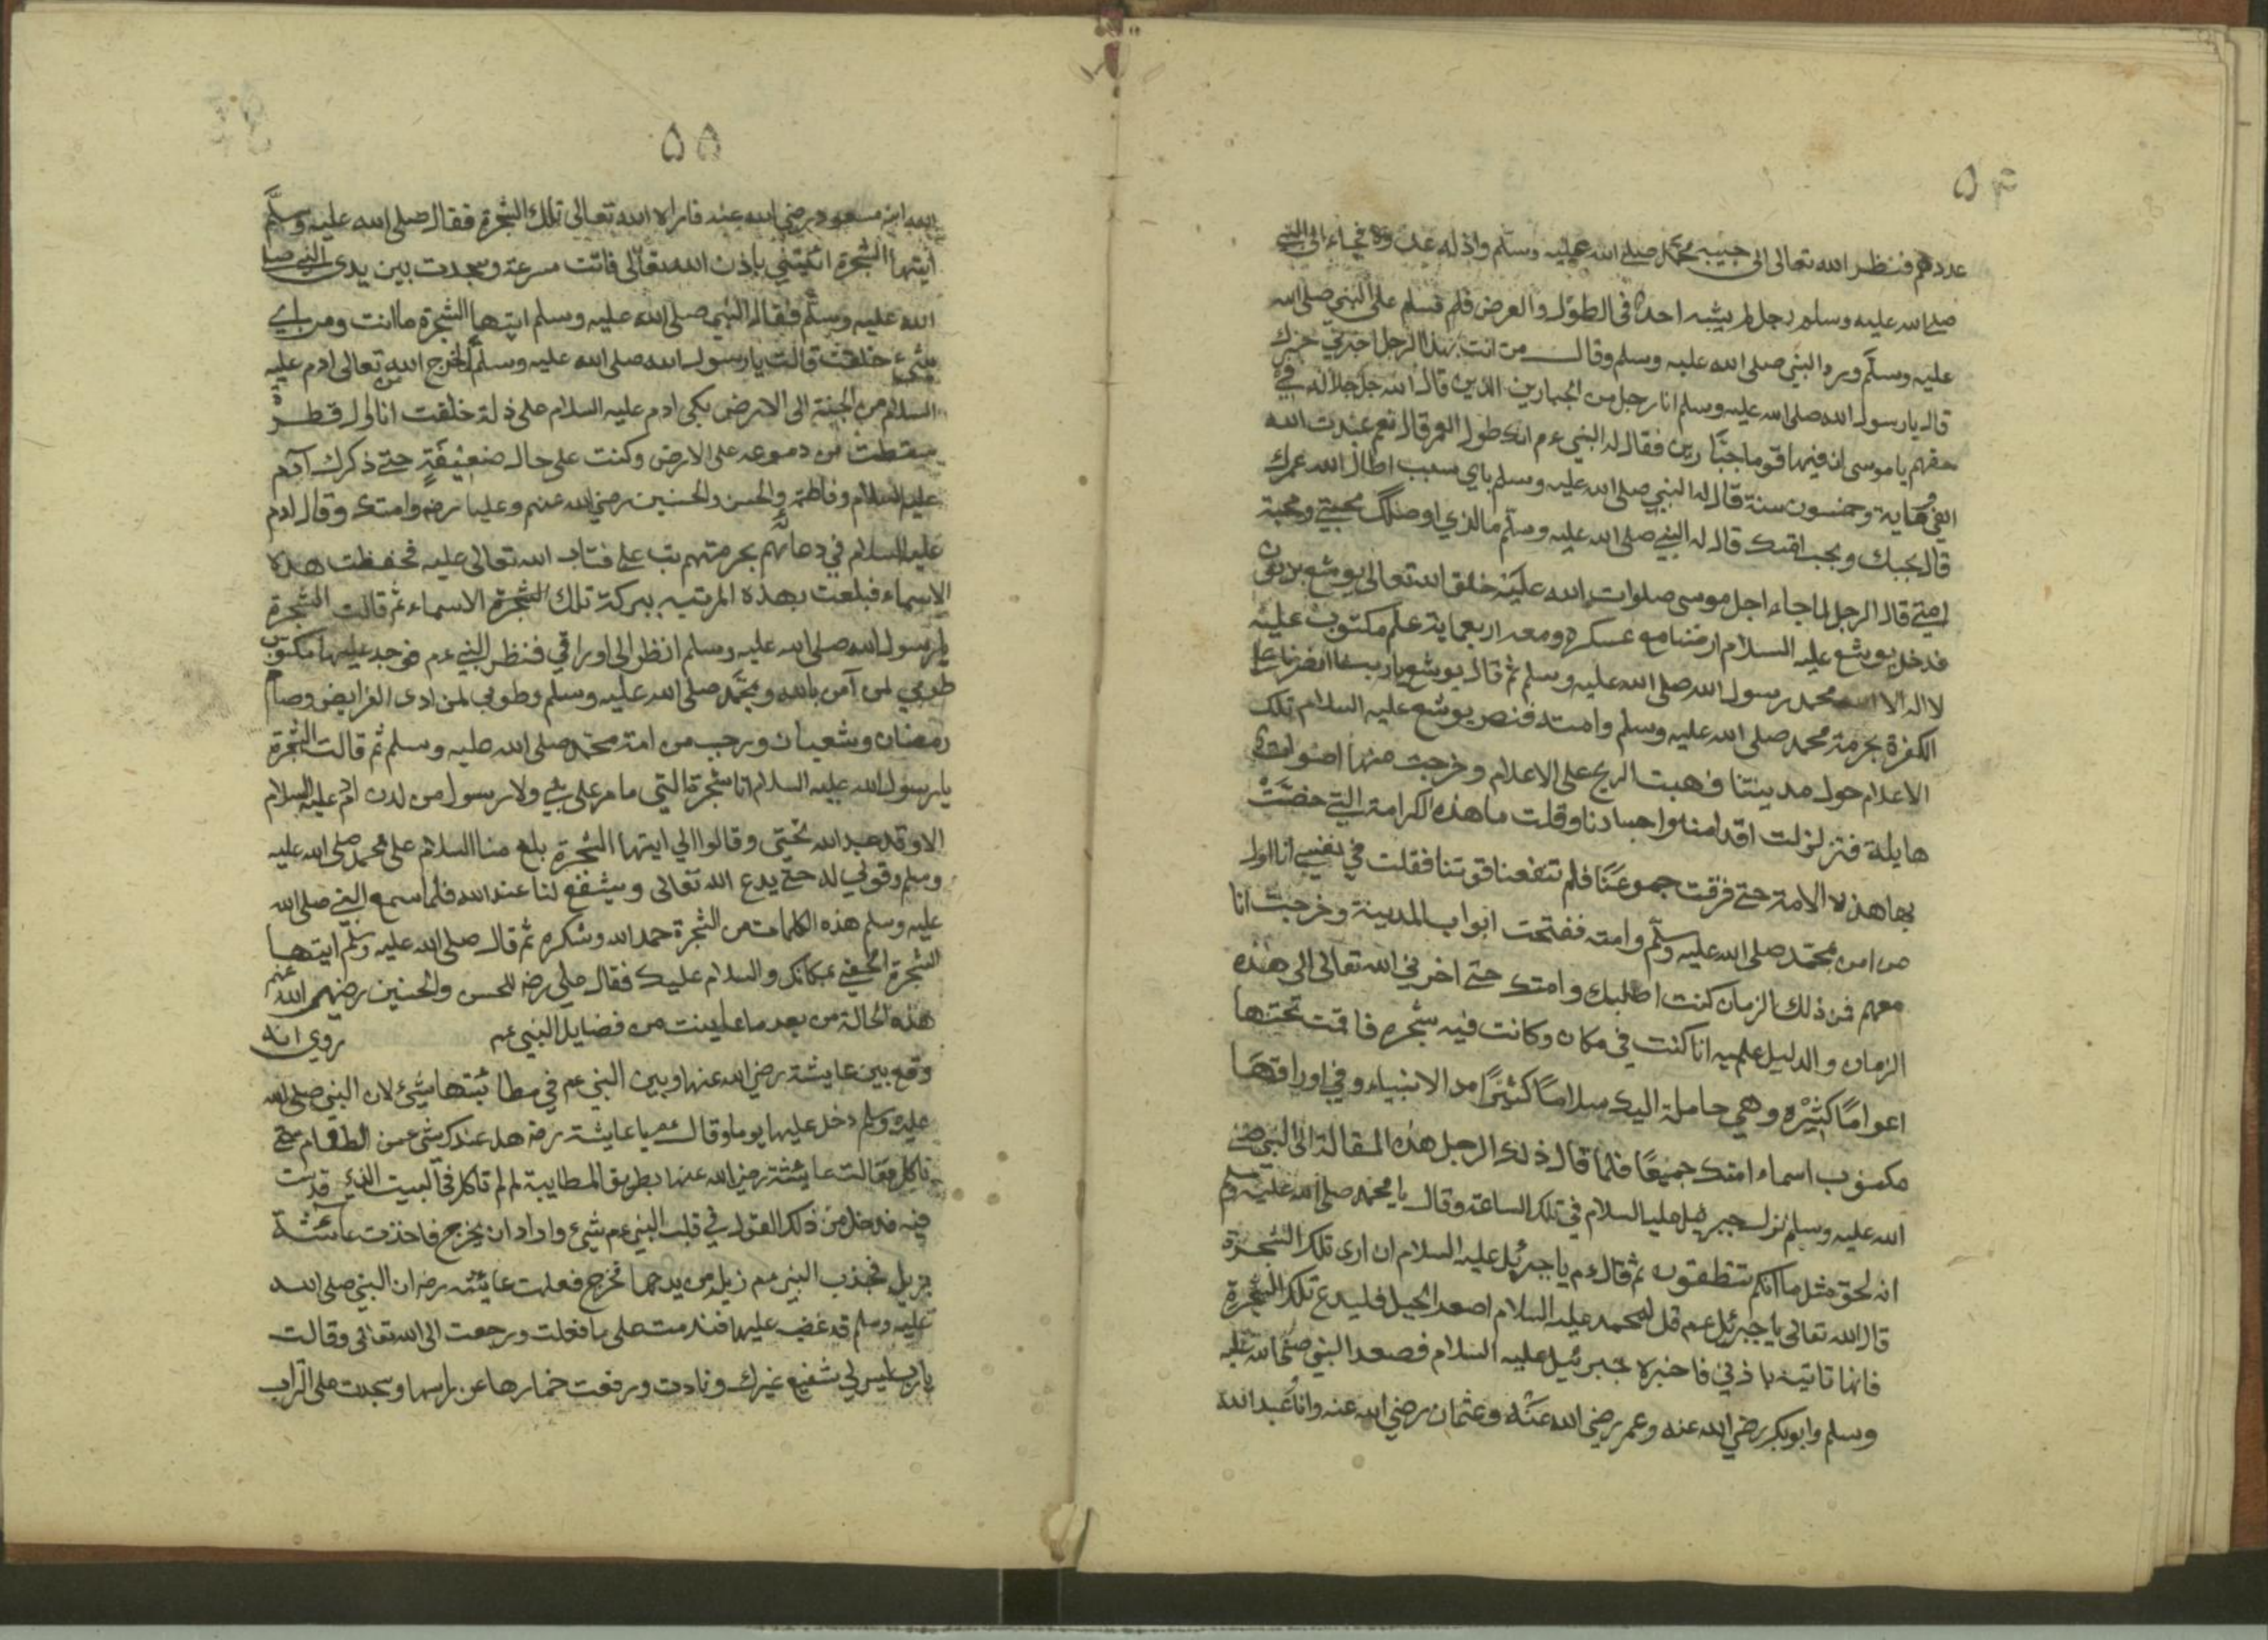 ۵۴
عددهم فنظر الله تعالى الى حبيبه محمد صلى الله عليه وسلم واذله عدوه فجاء الى النبي
صلى الله عليه وسلم رجل لم يشبه احد في الطول والعرض فلم فسلم على النبي صلى الله
عليه وسلم ورد النبي صلى الله عليه وسلم وقال من انت بهذا الرجل اخبرني خبرك
قال يارسول الله صلى الله عليه وسلم انا رجل من الجبارين الذين قال الله جل جلاله في
حقهم ياموسى ان فيها قوما جبارين فقال له النبي ءم انك طول العمر قال نعم عبدت الله
الفي وماية وخمسون سنة قال له النبي صلى الله عليه وسلم باي سبب اطال الله عمرك
قال بحبك وبحب امتك قال له النبي صلى الله عليه وسلم ما الذي اوصلك محبتي ومحبة
امتي قال الرجل لما جاء اجل موسى صلوات الله عليه خلق الله تعالى يوشع بن نون
فدخل يوشع عليه السلام ارضنا مع عسكره ومعه اربعماية علم مكتوب عليه
لا اله الا الله محمد رسول الله صلى الله عليه وسلم ثم قال يوشع ياربنا انصرنا على
الكفرة بحرمة محمد صلى الله عليه وسلم وامته فنصب يوشع عليه السلام تلك
الاعلام حول مدينتنا فهبت الريح على الاعلام وخرجت منها اصوات
هايلة فتزلزلت اقدامنا واجسادنا وقلت ما هذه الكرامة التي خصت
بها هذه الامة حتى فرقت جموعنا فلم تنفعنا قوتنا فقلت في نفسي انا اول
من امن بمحمد صلى الله عليه وسلم وامته ففتحت ابواب المدينة وخرجت انا
معهم فمن ذلك الزمان كنت اطلبك وامتك حتى اخرني الله تعالى الى هذه
الزمان والدليل عليه انا كنت في مكان وكانت فيه شجره فاقمت تحتها
اعواما كثيره وهي حاملة اليك سلاما كثيرا من الانبياء وفي اوراقها
مكتوب اسماء امتك جميعا فلما قال ذلك الرجل هذه المقالة الى النبي صلى
الله عليه وسلم نزل جبرئيل عليه السلام في تلك الساعة وقال يا محمد صلى الله عليه وسلم
انه لحق مثل ما انكم تنطقون ثم قال ءم يا جبرئيل عليه السلام ان ارى تلك الشجرة
قال الله تعالى يا جبرئيل عم قل لمحمد عليه السلام اصعد الجبل فليدع تلك الشجرة
فانها تاتيه باذني فاخبره جبرئيل عليه السلام فصعد النبي صلى الله عليه
وسلم وابوبكر رضي الله عنه وعمر رضي الله عنه وعثمان رضي الله عنه وانا عبد الله
۵۵
الله ابن مسعود رضي الله عنه فاراه الله تعالى تلك الشجرة فقال صلى الله عليه وسلم
ايتها الشجرة ائتيني باذن الله تعالى فاتت مسرعة وسجدت بين يدى النبي صلى
الله عليه وسلم فقال النبي صلى الله عليه وسلم ايتها الشجرة ما انت ومن باي
شيء خلقت قالت يا رسول الله صلى الله عليه وسلم لما اخرج الله تعالى ادم عليه
السلام من الجنة الى الارض بكى ادم عليه السلام على ذلة خلقت انا اول قطرة
سقطت من دموعه على الارض وكنت على حال ضعيفة حتى ذكرك آدم
عليه السلام وفاطمة والحسن والحسين رضي الله عنهم وعليا رضه وامتك وقال ادم
عليه السلام في دعائهم بحرمتهم تب علي فتاب الله تعالى عليه فحفظت هذه
الاسماء فبلغت بهذه المرتبه ببركة تلك الشجرة الاسماء ثم قالت الشجرة
يا رسول الله صلى الله عليه وسلم انظر الى اوراقي فنظر النبي ءم فوجد عليها مكتوب
طوبي لمن آمن بالله وبمحمد صلى الله عليه وسلم وطوبي لمن ادى الفرايض وصام
رمضان وشعبان ورجب من امة محمد صلى الله عليه وسلم ثم قالت الشجرة
يا رسول الله عليه السلام انا شجرة التي ما مر علي نبي ولا رسول من لدن ادم عليه السلام
الا وقد عبد الله تحتي وقالوا الي ايتها الشجرة بلغ منا السلام على محمد صلى الله عليه
وسلم وقولي له حتى يدع الله تعالى ويشفع لنا عند الله فلما سمع النبي صلى الله
عليه وسلم هذه الكلمات من الشجرة حمد الله وشكره ثم قال صلى الله عليه وسلم ايتها
الشجرة الحقي بمكانك والسلام عليك فقال علي رضه للحسن والحسين رضيهم الله عنهم
هذه الحالة من بعد ما عاينت من فضايل النبي عم روي انه
وقع بين عايشة رضي الله عنها وبين النبي عم في مطائبتها شيئ لان النبي صلى الله
عليه وسلم دخل عليها يوما وقال عم يا عايشة رضه هل عندك شيئ من الطعام حتى
ناكل فقالت عايشة رضي الله عنها بطريق المطايبة لم لم تاكل في البيت الذي قد بت
فيه فدخل من ذلك القول في قلب النبي ءم شيئ واراد ان يخرج فاخذت عائشة
بزيل فجذب النبي عم زيله من يدها فخرج فعلمت عايشه رضه ان النبي صلى الله
عليه وسلم قد غضب عليها فندمت على ما فعلت ورجعت الى الله تعالى وقالت
يارب ليس لي شفيع غيرك ونادت ورفعت خمارها عن راسها وسجدت على التراب